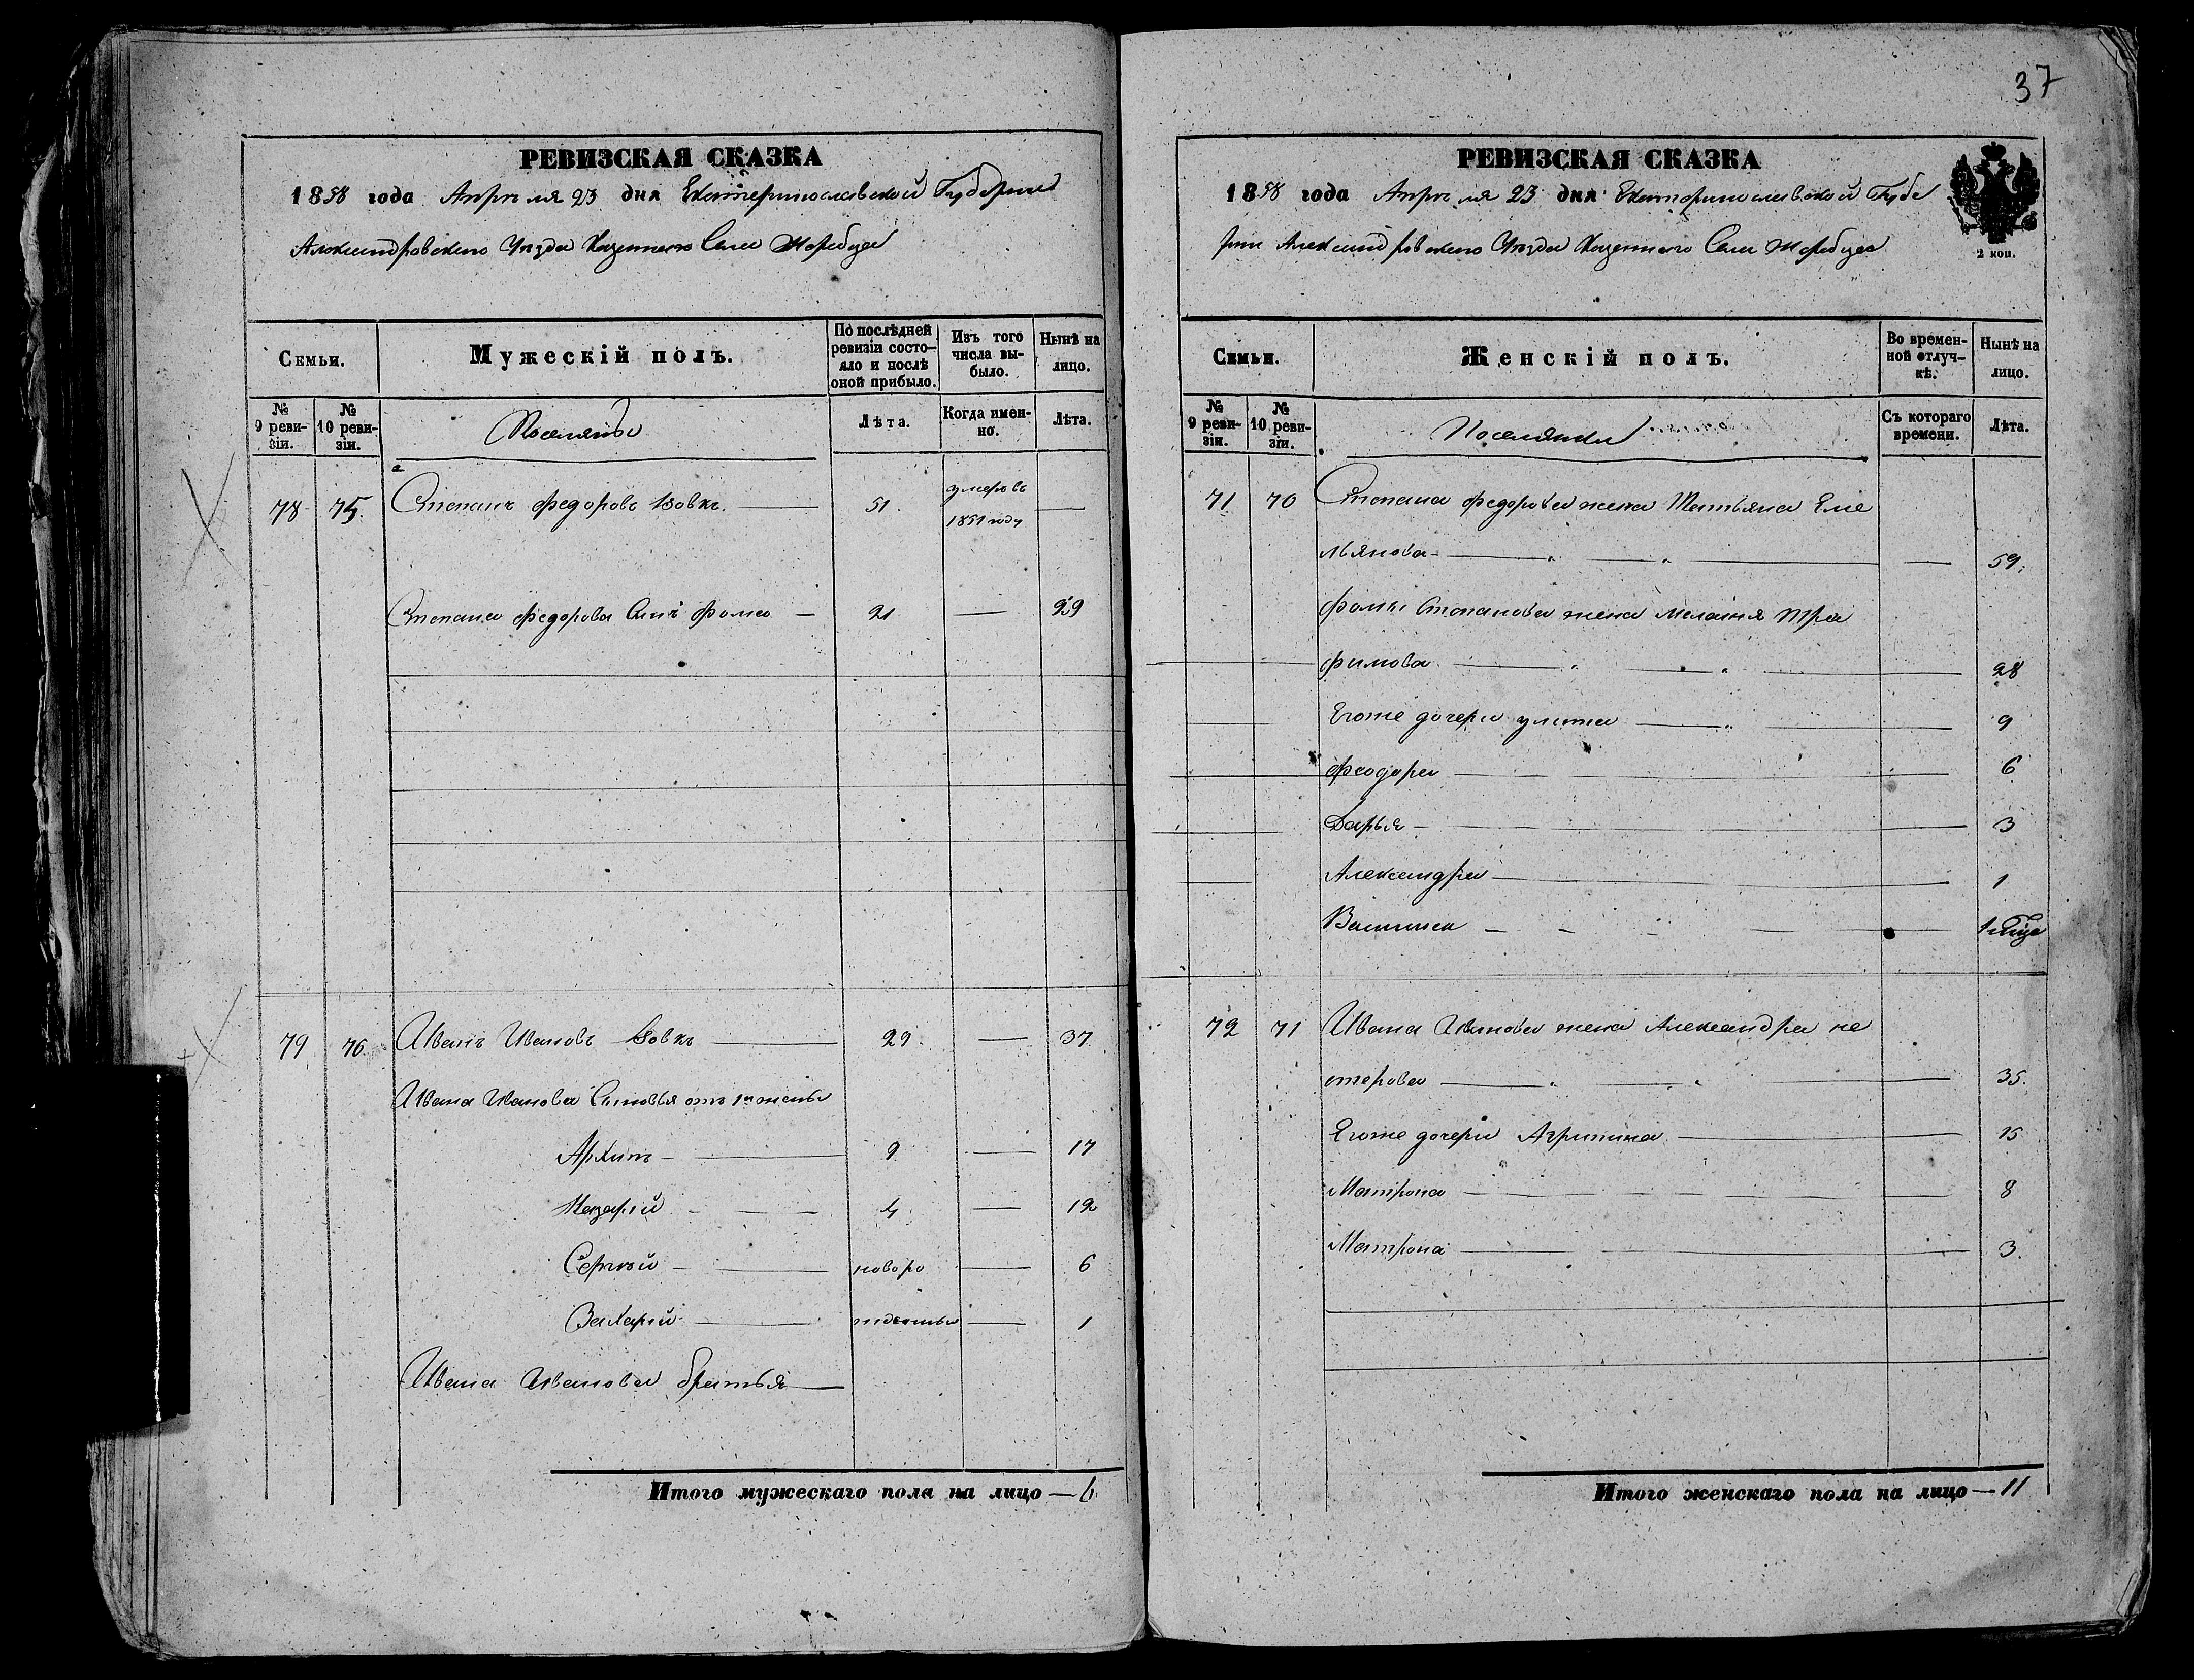 37
РЕВИЗСКАЯ СКАЗКА
1858 года Апрѣля 23 дня Екатеринославской Губернии
Александровскаго Уѣзда Казеннаго Села Жеребца
Семьи.
Мужескій полъ.
По послѣдней ревизіи состояло и послѣ оной прибыло.
Изъ того числа выбыло.
Нынѣ на лицо.
№ 9 ревизіи.
№ 10 ревизіи.
Поселяне
Лѣта.
Когда именно.
Лѣта.
78 75. Степанъ Федоровъ Вовкъ. 51 умеръ въ 1851 году
Степана Федорова Сынъ Фома 21 29
79 76. Иванъ Ивановъ Вовкъ 29 37
Ивана Иванова Сыновья отъ 1й жены
Архипъ 9 17
Назарій 4 12
Сергѣй новоро 6
Захарій жденные 1
Ивана Иванова братья
Итого мужескаго пола на лицо — 6
РЕВИЗСКАЯ СКАЗКА
1858 года Апрѣля 23 дня Екатеринославской Губе
рніи Александровскаго Уѣзда Казеннаго Села Жеребца
2 коп.
Семьи.
Женскій полъ.
Во временной отлучкѣ.
Нынѣ на лицо.
№ 9 ревизіи.
№ 10 ревизіи.
Поселянки
Съ котораго времени.
Лѣта.
71 70 Степана Федорова жена Татьяна Еме
льянова 59.
Фомы Степанова жена Мелания Тра
фимова 28
Егоже дочери Улита 9
Феодора 6
Дарья 3
Александра 1
Василиса
72 71 Ивана Иванова жена Александра не
стерова 35.
Егоже дочери Агрипина 15
Матрона 8
Матрона 3.
Итого женскаго пола на лицо — 11